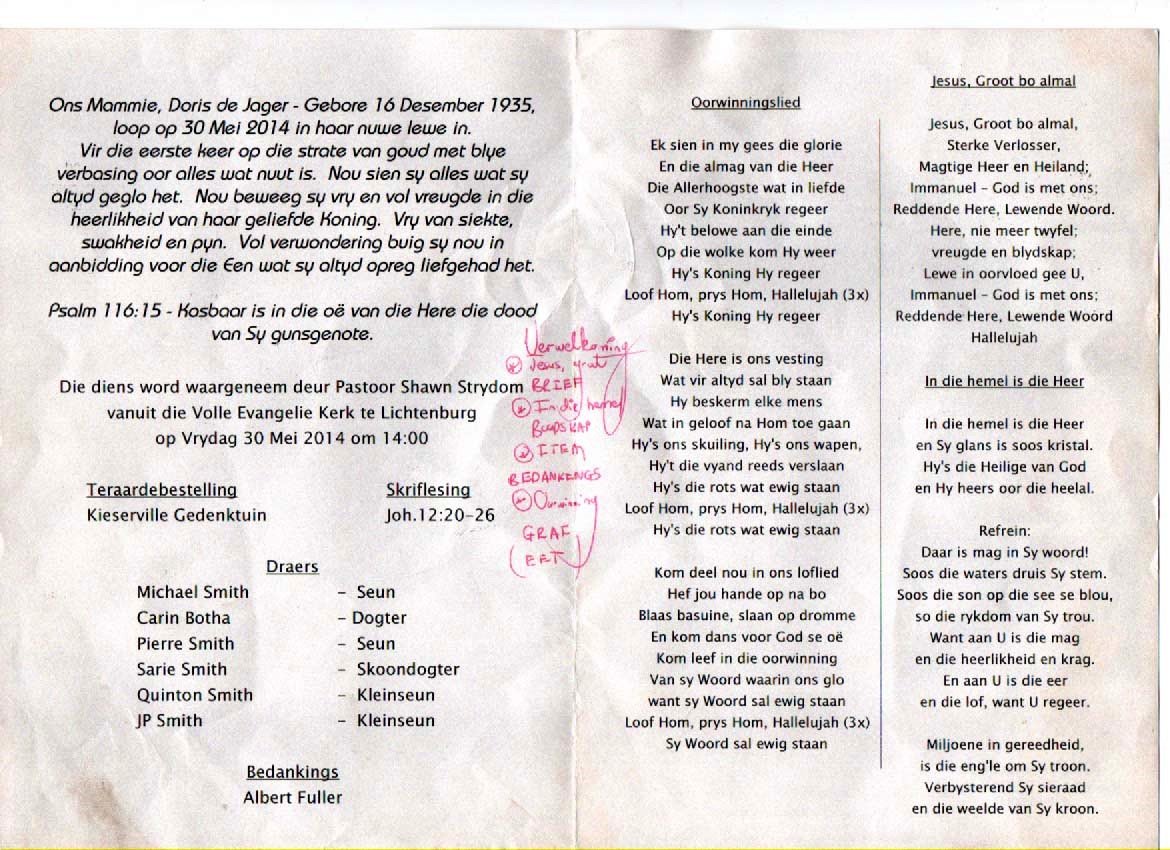 Ons Mammie, Doris de Jager - Gebore 16 Desember 1935,
loop op 30 Mei 2014 in haar nuwe lewe in.
Vir die eerste keer op die strate van goud met blye
verbasing oor alles wat nuut is. Nou sien sy alles wat sy
altyd geglo het. Nou beweeg sy vry en vol vreugde in die
heerlikheid van haar geliefde Koning. Vry van siekte,
swakheid en pyn. Vol verwondering buig sy nou in
aanbidding voor die Een wat sy altyd opreg liefgehad het.
Psalm 116:15 - Kosbaar is in die oë van die Here die dood
van Sy gunsgenote.
Die diens word waargeneem deur Pastoor Shawn Strydom
vanuit die Volle Evangelie Kerk te Lichtenburg
op Vrydag 30 Mei 2014 om 14:00
Teraardebestelling
Kieserville Gedenktuin
Skriflesing
Joh.12:20-26
Draers
Michael Smith - Seun
Carin Botha - Dogter
Pierre Smith - Seun
Sarie Smith - Skoondogter
Quinton Smith - Kleinseun
JP Smith - Kleinseun
Bedankings
Albert Fuller
Verwelkoming
Jesus, groot
BRIEF
In die hemel
BOODSKAP
ITEM
BEDANKENGS
GRAF
(EET)
Oorwinningslied
Ek sien in my gees die glorie
En die almag van die Heer
Die Allerhoogste wat in liefde
Oor Sy Koninkryk regeer
Hy't belowe aan die einde
Op die wolke kom Hy weer
Hy's Koning Hy regeer
Loof Hom, prys Hom, Hallelujah (3x)
Hy's Koning Hy regeer
Die Here is ons vesting
Wat vir altyd sal bly staan
Hy beskerm elke mens
Wat in geloof na Hom toe gaan
Hy's ons skuiling, Hy's ons wapen,
Hy't die vyand reeds verslaan
Hy's die rots wat ewig staan
Loof Hom, prys Hom, Hallelujah (3x)
Hy's die rots wat ewig staan
Kom deel nou in ons loflied
Hef jou hande op na bo
Blaas basuine, slaan op dromme
En kom dans voor God se oë
Kom leef in die oorwinning
Van sy Woord waarin ons glo
want sy Woord sal ewig staan
Loof Hom, prys Hom, Hallelujah (3x)
Sy Woord sal ewig staan
Jesus, Groot bo almal
Jesus, Groot bo almal,
Sterke Verlosser,
Magtige Heer en Heiland;
Immanuel - God is met ons;
Reddende Here, Lewende Woord.
Here, nie meer twyfel;
vreugde en blydskap;
Lewe in oorvloed gee U,
Immanuel - God is met ons;
Reddende Here, Lewende Woord
Hallelujah
In die hemel is die Heer
In die hemel is die Heer
en Sy glans is soos kristal.
Hy's die Heilige van God
en Hy heers oor die heelal.
Refrein:
Daar is mag in Sy woord!
Soos die waters druis Sy stem.
Soos die son op die see se blou,
so die rykdom van Sy trou.
Want aan U is die mag
en die heerlikheid en krag.
En aan U is die eer
en die lof, want U regeer.
Miljoene in gereedheid,
is die eng'le om Sy troon.
Verbysterend Sy sieraad
en die weelde van Sy kroon.